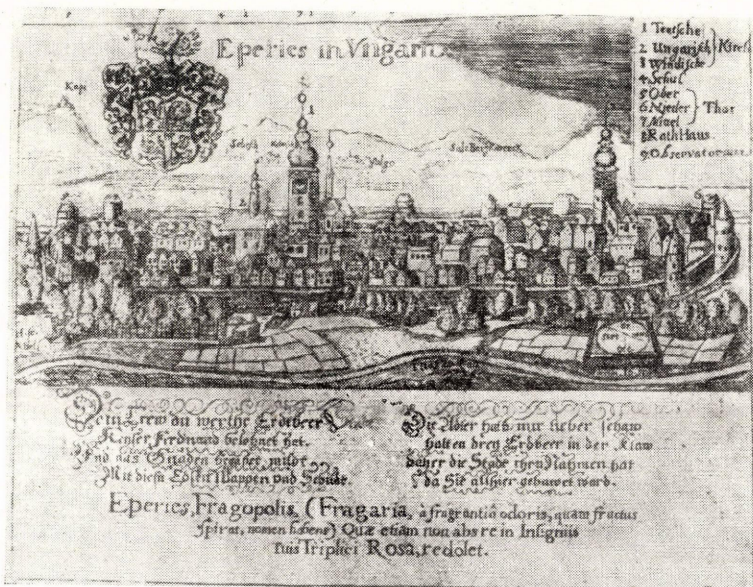 Eperies in Vngarn
1 Teutsche
2 Ungarisch } Kirch
3 Windische
4 Schul
5 Ober
6 Nieder } Thor
7
8 RathHaus
9 Observatorium
Kapi
Salz Bergkwerck
1
2
Dein Trew du werthe Erdtbeer Stadt
Keyser Ferdinand belohnet hat.
Und aus Gnaden begabet mildt
Mit diesm Edlen Wappen und Schildt.
Die Adler hatt mir lieber schaw
halten drey Erdbeer in der Klaw
daher die Stadt ihrn Nahmen hat
da Sie allhier gebawet ward.
Eperies, Fragopolis, (Fragaria, à fragrantia odoris, quam fructus
spirat, nomen habens) Quæ etiam non abs re in Insigniis
suis Triplici Rosa, redolet.